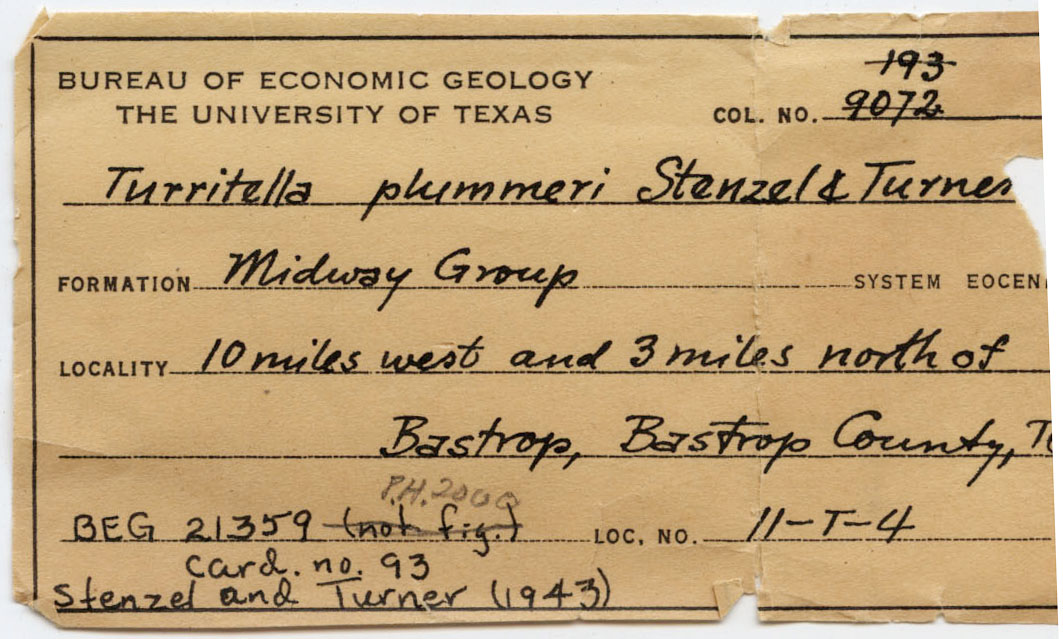 193
BUREAU OF ECONOMIC GEOLOGY
THE UNIVERSITY OF TEXAS COL. NO. 9072
Turritella plummeri Stenzel & Turner
FORMATION Midway Group SYSTEM EOCEN
LOCALITY 10 miles west and 3 miles north of
Bastrop, Bastrop County, Te
P.H. 2000
BEG 21359 (not fig.) LOC. NO. 11-T-4
card. no. 93
Stenzel and Turner (1943)